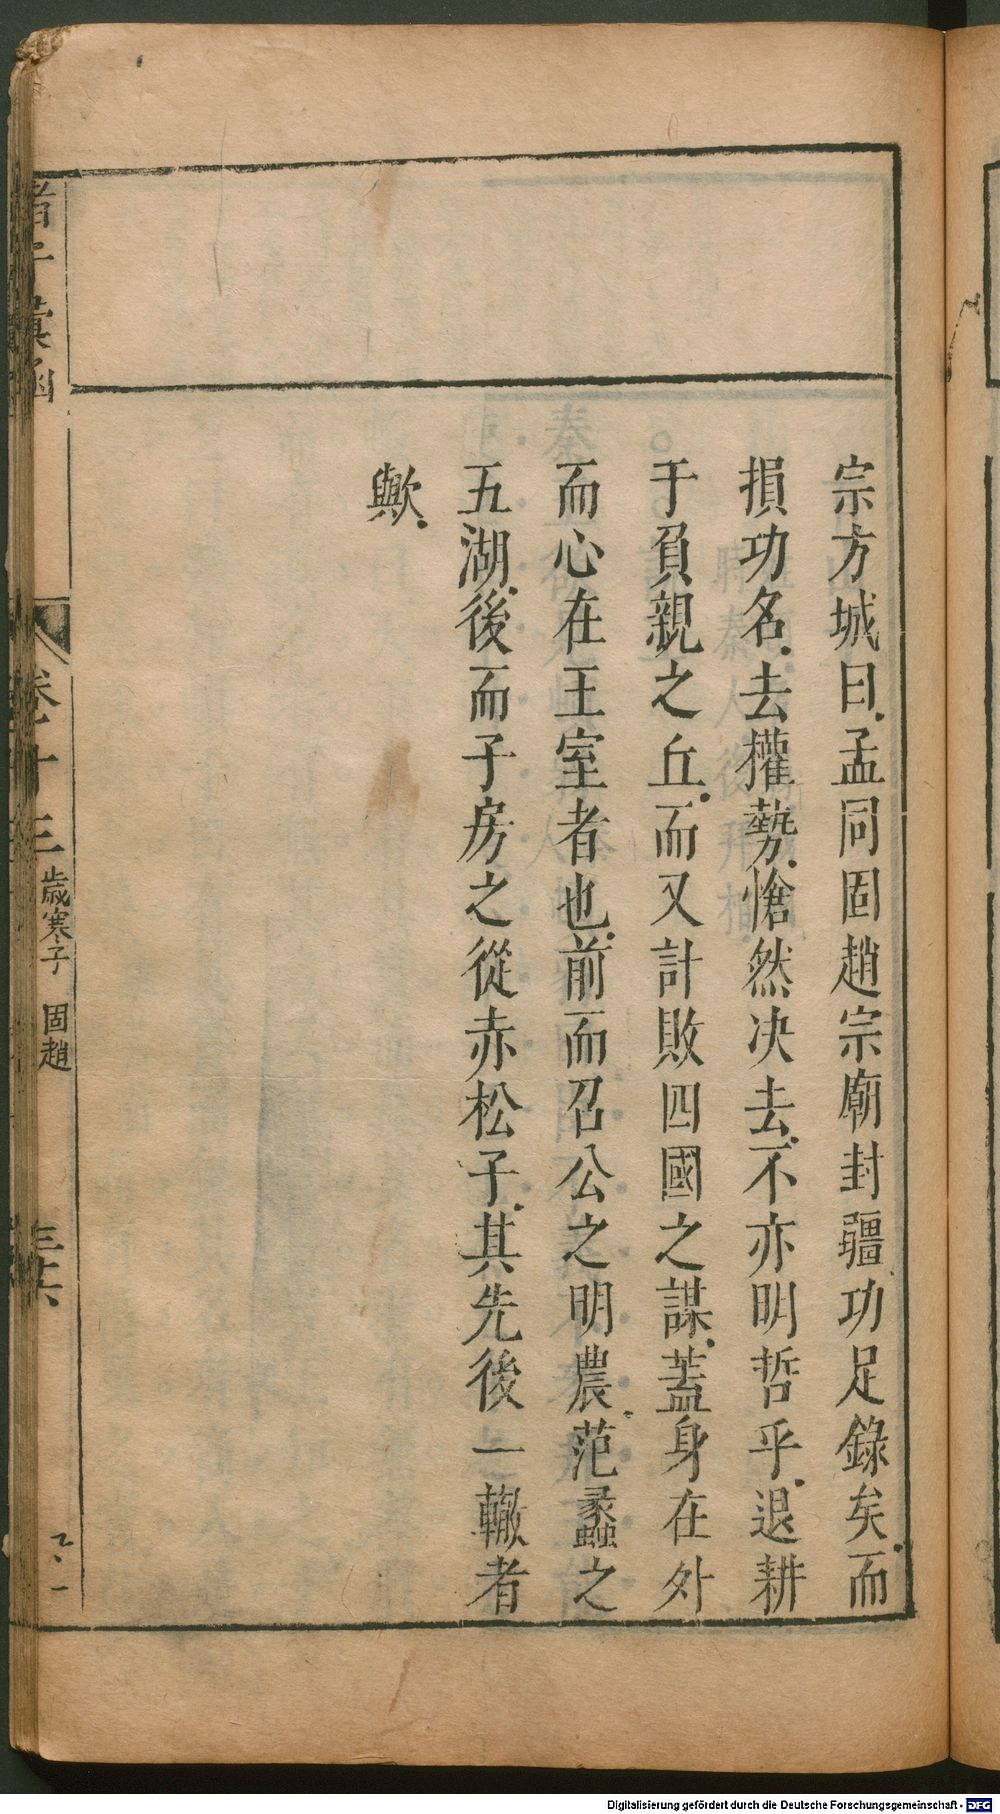 宗方城曰孟同固趙宗廟封疆功足錄矣而
損功名去權勢愴然决去不亦明哲乎退耕
于負親之丘而又計敗四國之謀蓋身在外
而心在王室者也前而召公之明農范蠡之
五湖後而子房之從赤松子其先後一轍者
歟
諸子彙函
卷十三
歲寒子 固趙
三十六
Digitalisierung gefördert durch die Deutsche Forschungsgemeinschaft - DFG